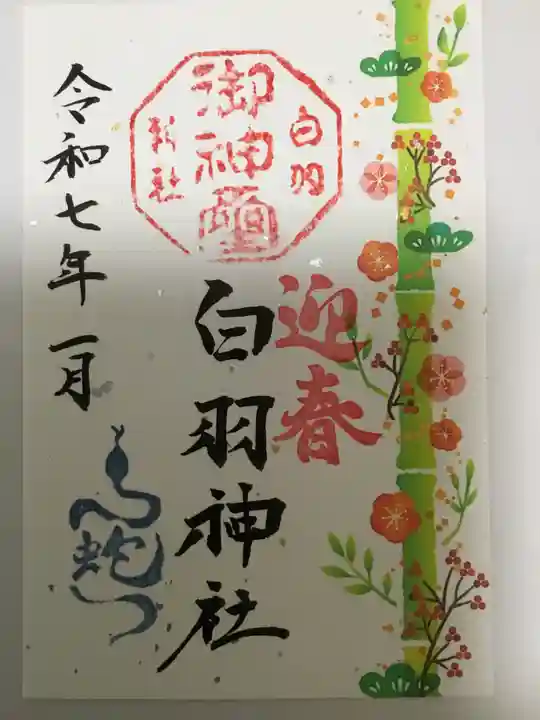 迎春
白羽
御神璽
神社
白羽神社
令和七年一月
蛇